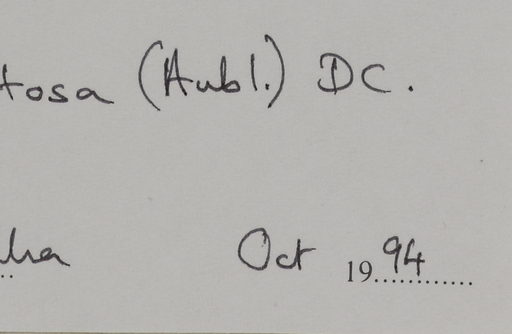 tosa (Aubl.) DC.
Oct 1994